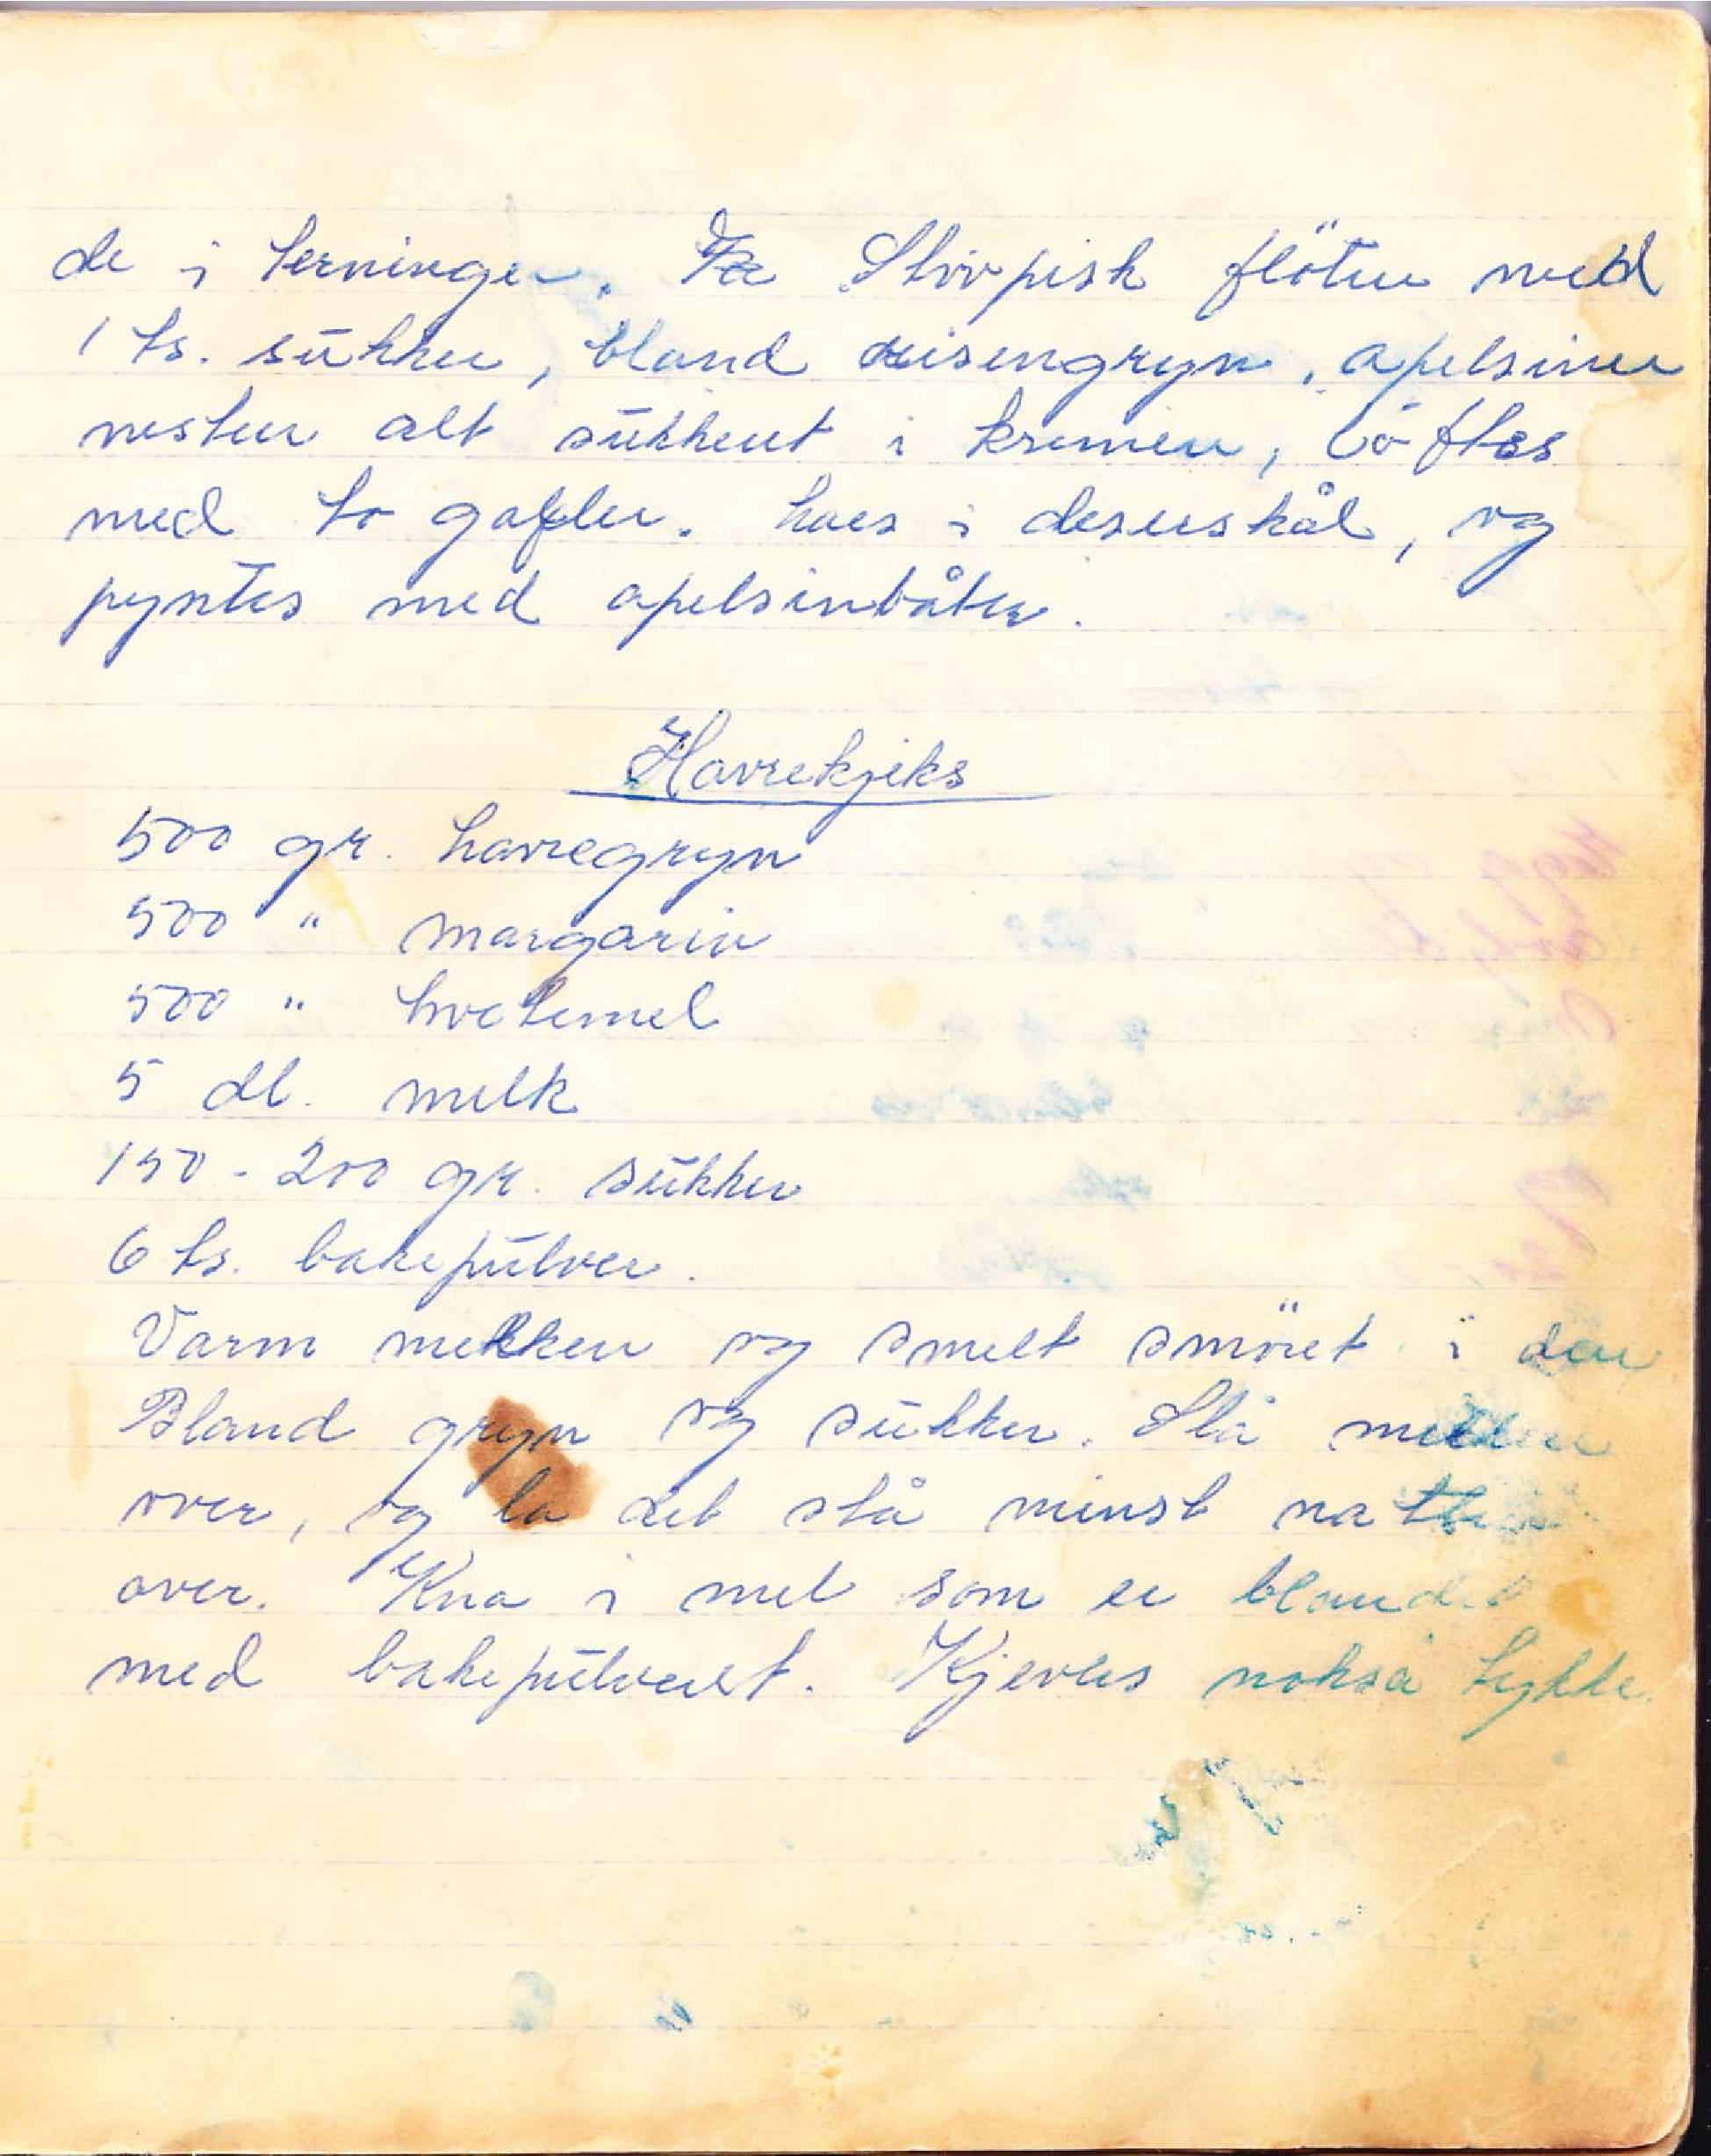 de i terninger. Stivpisk flöten med
1 ts. sukker, bland risengryn, apelsiner
nesten alt sukkeret i kremen, löftes
med to gafler. haes i deserskål, og
pyntes med apelsinbåter.
Havrekjeks
500 gr. havregryn
500 " margarin
500 " hvetemel
5 dl. melk
150 - 200 gr. sukker
6 ts. bakepulver.
Varm melken og smelt smöret i den
Bland gryn og sukker. Slå melken
over, og la det stå minst natten
over. Kna i mel som er blandet
med bakepulveret. Kjevles nokså tykke.